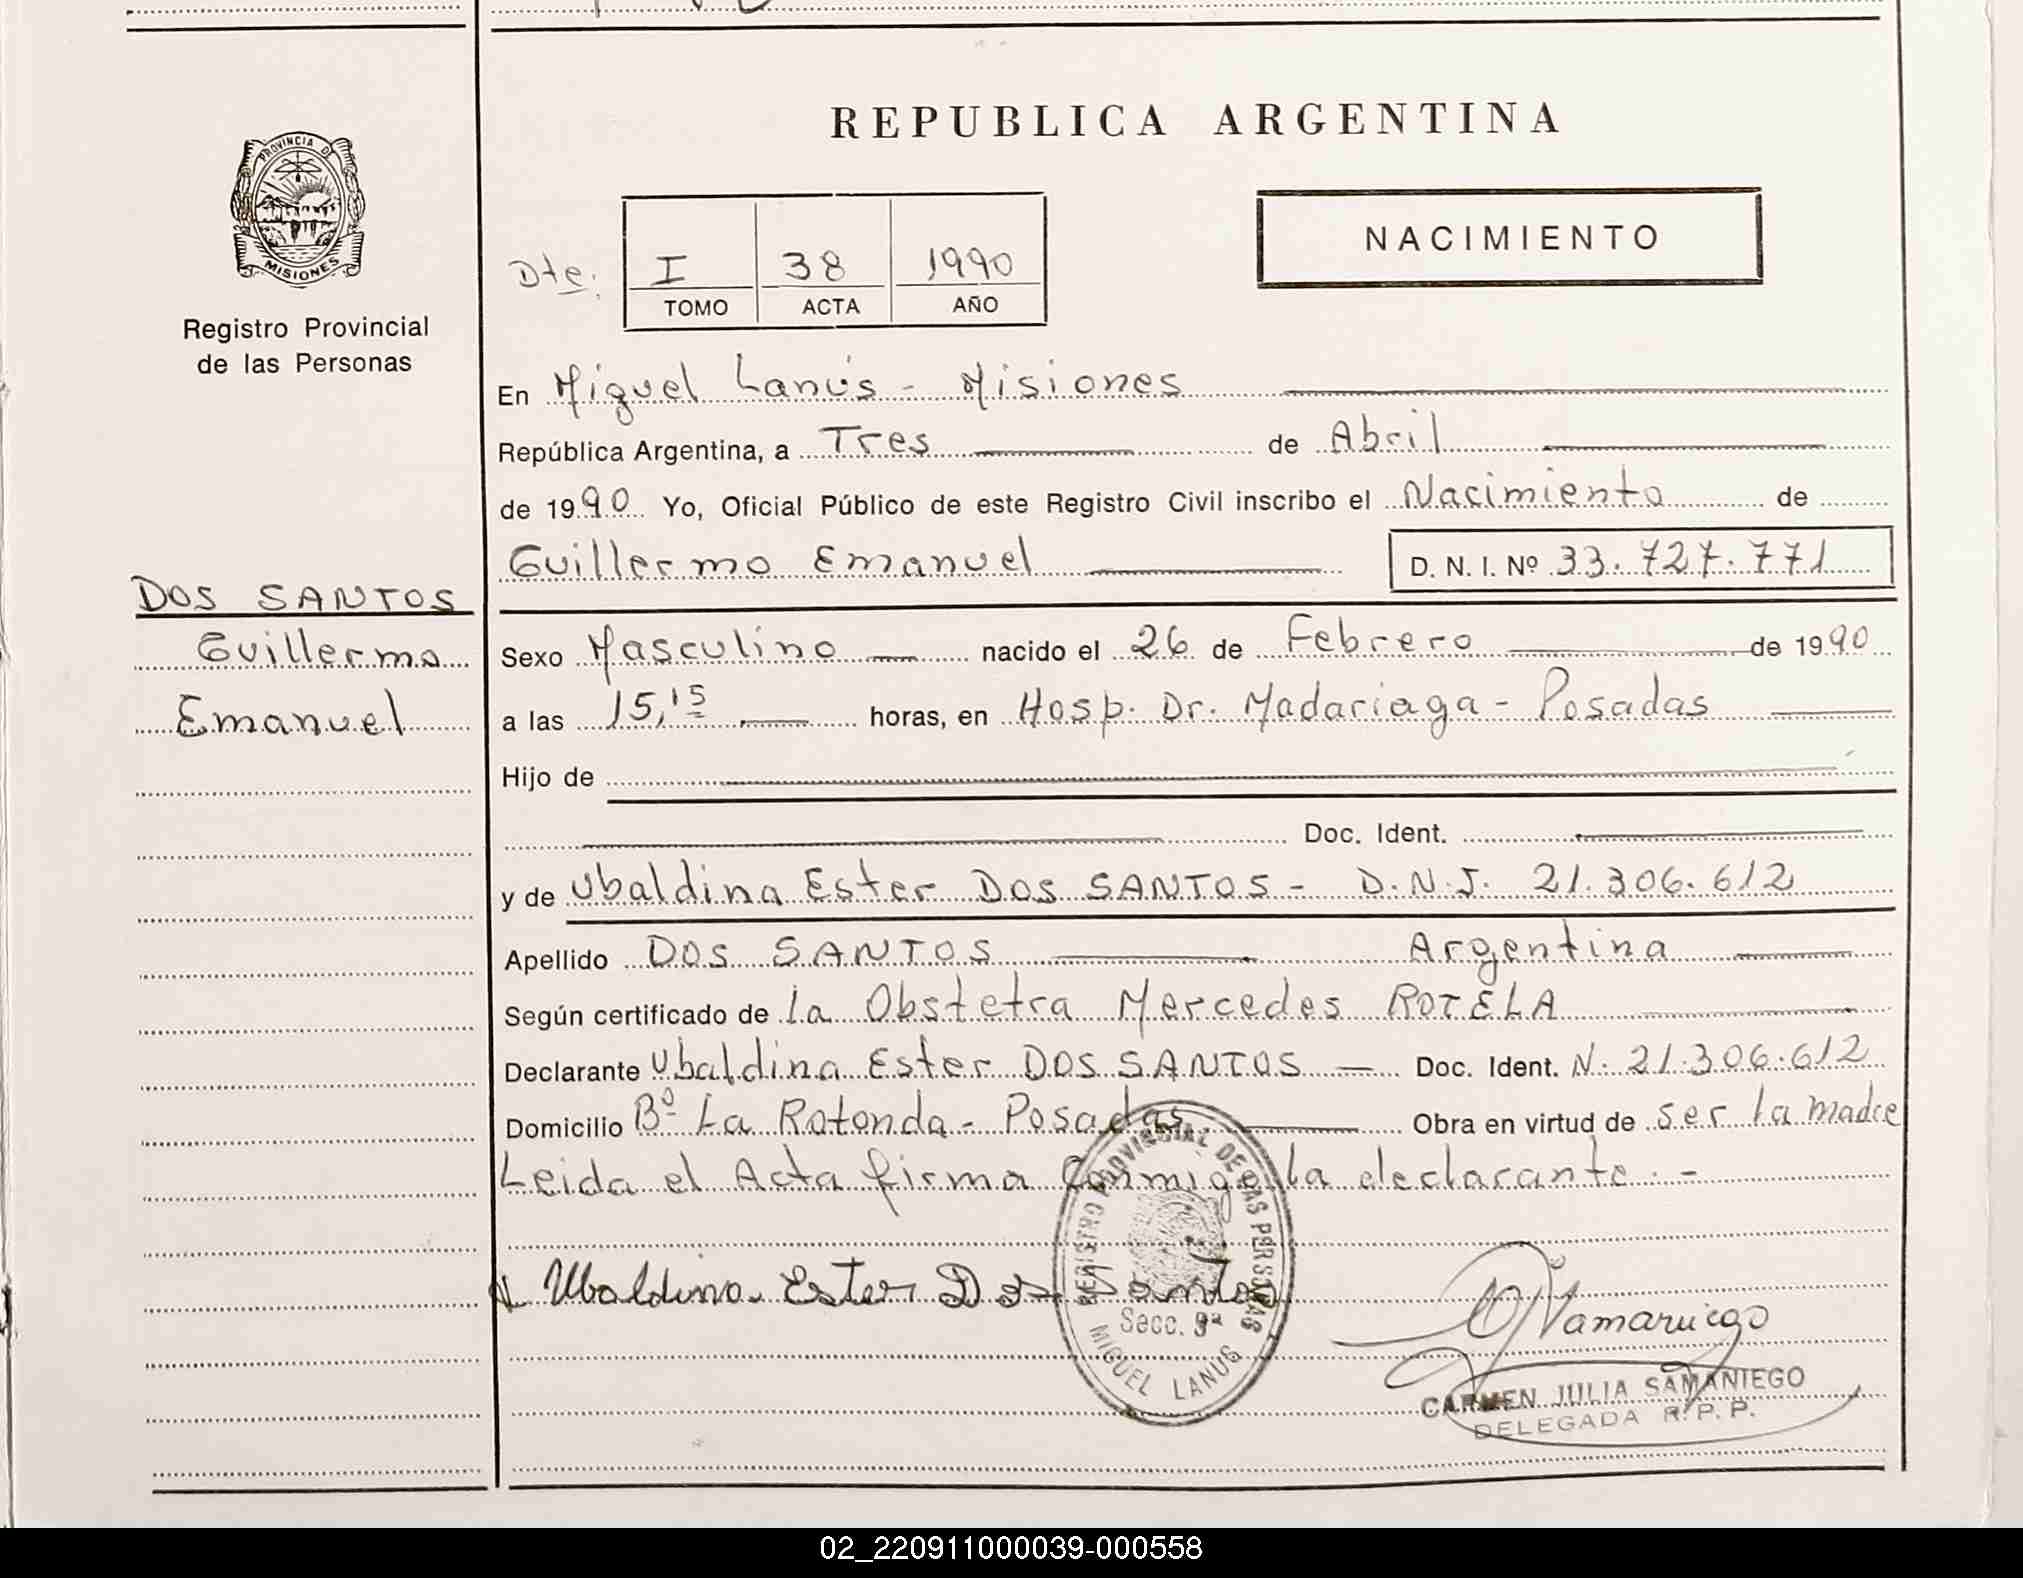 REPUBLICA ARGENTINA
PROVINCIA DE
MISIONES
Registro Provincial
de las Personas
NACIMIENTO
Dte: I 38 1990
TOMO ACTA AÑO
En Miguel Lanús - Misiones
República Argentina, a Tres de Abril
de 1990 Yo, Oficial Público de este Registro Civil inscribo el Nacimiento de
Guillermo Emanuel D. N. I. Nº 33.727.771
DOS SANTOS
Guillermo
Emanuel
Sexo Masculino nacido el 26 de Febrero de 1990
a las 15,15 horas, en Hosp. Dr. Madariaga - Posadas
Hijo de
Doc. Ident.
y de Ubaldina Ester DOS SANTOS - D.N.I. 21.306.612
Apellido DOS SANTOS Argentina
Según certificado de la Obstetra Mercedes ROTELA
Declarante Ubaldina Ester DOS SANTOS Doc. Ident. N. 21.306.612
Domicilio Bº La Rotonda - Posadas Obra en virtud de ser la madre
Leida el Acta firma Conmigo la declarante. -
Ubaldina Ester Dos Santos
REGISTRO PROVINCIAL DE LAS PERSONAS
Secc. 9ª
MIGUEL LANUS
CARMEN JULIA SAMANIEGO
DELEGADA R. P. P.
02_220911000039-000558